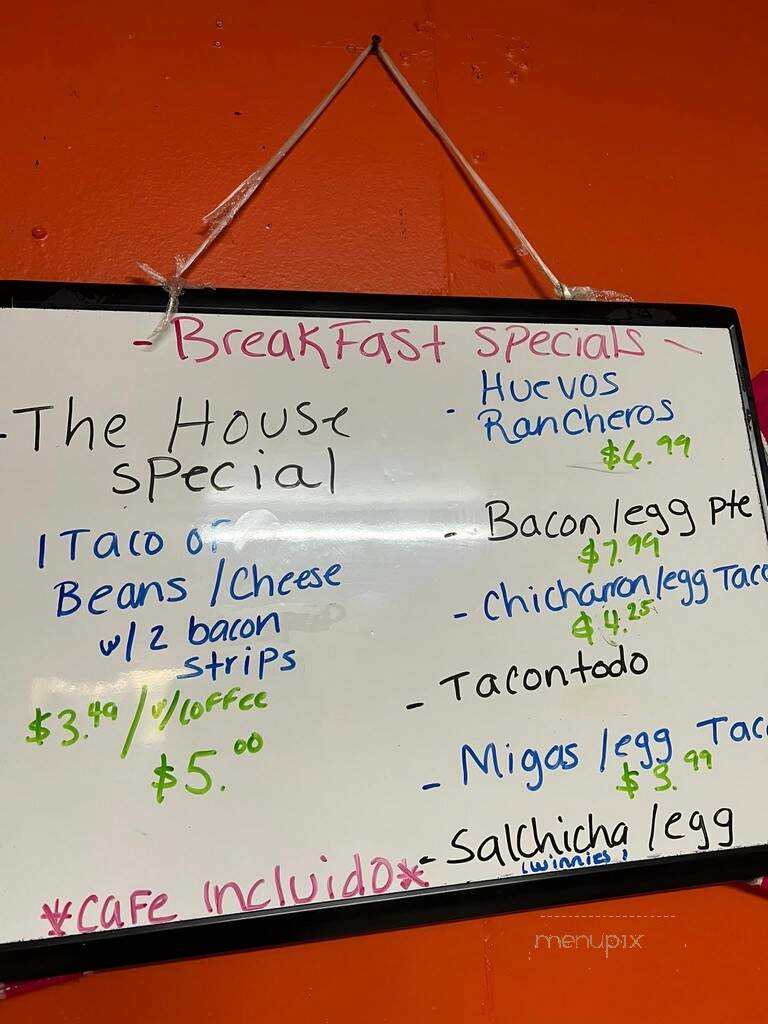 - BreakFast specials -
- The House
special
1 Taco of
Beans / Cheese
w/ 2 bacon
strips
$3.49 / w/ coffee
$5.00
*cafe incluido*
- Huevos
Rancheros
$6.99
- Bacon / egg pte
$7.99
- Chicharron/egg Taco
$4.25
- Tacontodo
- Migas / egg Taco
$3.99
- Salchicha / egg
(winnies)
menupix